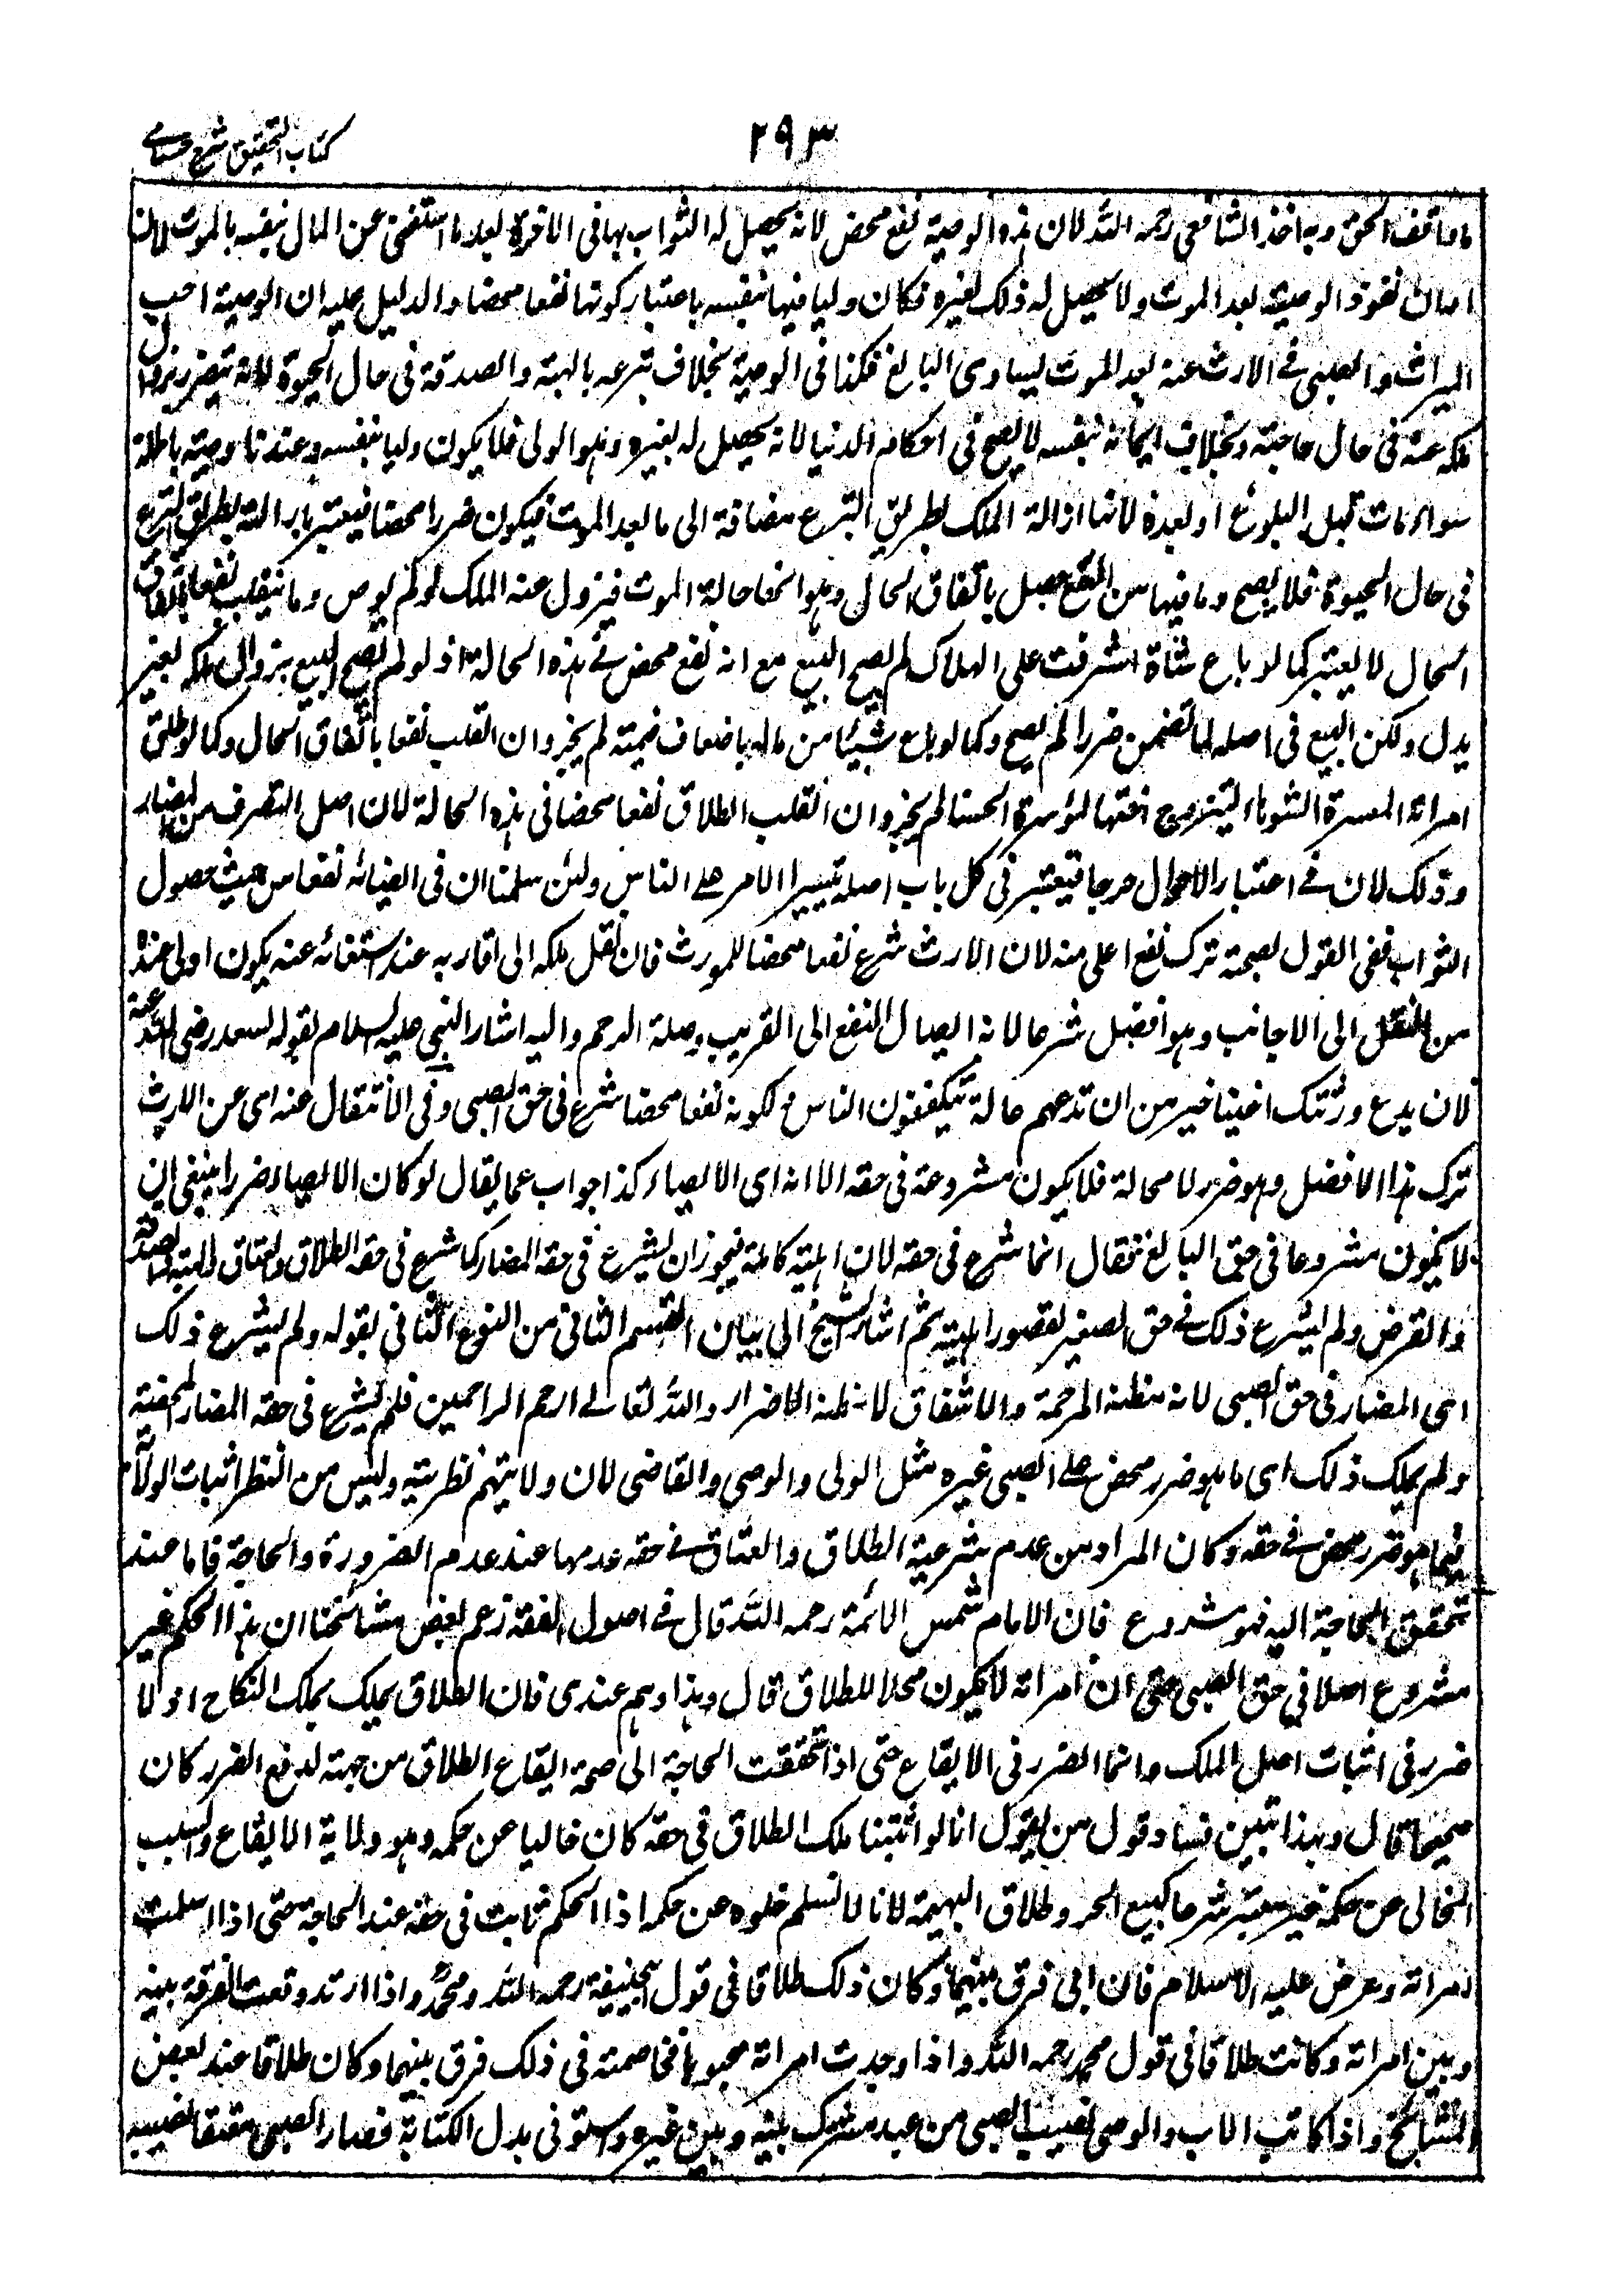 كتاب التحقيق شرح حسامي
٢٩٣
ما وافق الحق وبه اخذ الشافعي رحمه الله لان هذه الوصية نفع محض لانه يحصل له الثواب بها في الآخرة بعد ما استغنى عن المال بنفسه بالموت لان
اوان نفوذ الوصية بعد الموت ولا يحصل له ذلك لغيره فكان وليا فيها بنفسه باعتبار كونها نفعا محضا والدليل عليه ان الوصية اخت
الميراث والصبي في الارث عنه بعد الموت يساوى البالغ فكذا في الوصية بخلاف تبرعه بالهبة والصدقة في حال الحيوة لانه يتضرر بزوال
ملكه عنه في حال حاجته وبخلاف ايمانه بنفسه لا يصح في احكام الدنيا لانه يحصل له بغيره وهو الولى فلا يكون وليا بنفسه وعندنا وصيته باطلة
سواء مات قبل البلوغ او بعده لانها ازالة الملك بطريق التبرع مضافة الى ما بعد الموت فيكون ضررا محضا فيعتبر بازالته بطريق التبرع
في حال الحيوة فلا يصح وما فيها من النفع حصل باتفاق الحال وهو انها حالة الموت فيزول عنه الملك لو لم يوص وما ينقلب نفعا باتفاق
الحال لا يعتبر كما لو باع شاة اشرفت على الهلاك لم يصح البيع مع انه نفع محض في هذه الحالة اذ لو لم يصح البيع يزول ملكه بغير
بدل ولكن البيع في اصله لما تضمن ضررا لم يصح وكما لو باع شيئا من ماله باضعاف قيمته لم يجز وان انقلب نفعا باتفاق الحال وكما لو طلق
امراته المعسرة الشوهاء ليتزوج اختها الموسرة الحسنا لم يجز وان انقلب الطلاق نفعا محضا في هذه الحالة لان اصل التصرف من المضار
وذلك لان في اعتبار الاحوال حرجا فيعتبر في كل باب اصله تيسيرا للامر على الناس ولئن سلمنا ان في ايصائه نفعا من حيث حصول
الثواب ففي القول بصحته ترك نفع اعلى منه لان الارث شرع نفعا محضا للمورث فان نقل ملكه الى اقاربه عند استغنائه عنه يكون اولى عنده
من النقل الى الاجانب وهو افضل شرعا لانه ايصال النفع الى القريب وصلة الرحم واليه اشار النبي عليه السلام بقوله لسعد رضى الله عنه
لان يدع ورثتك اغنيا خير من ان تدعهم عالة يتكففون الناس ولكونه نفعا محضا شرع في حق الصبى وفى الانتقال عنه اى عن الارث
ترك هذا الافضل وهو ضرر لا محالة فلا يكون مشروعة في حقه الا انه اى الايصاء كذا جواب عما يقال لو كان الايصاء ضررا ينبغى ان
لا يكون مشروعا في حق البالغ فقال انما شرع في حقه لان اهليته كاملة فيجوز ان يشرع في حقه المضار كما شرع في حقه الطلاق والعتاق والهبة والصدقة
والقرض ولم يشرع ذلك في حق الصغير لقصور اهليته ثم اشار الشيخ الى بيان القسم الثانى من النوع الثانى بقوله ولم يشرع ذلك
اى المضار في حق الصبى لانه مظنة المرحمة والاشفاق لا مظنة الاضرار والله تعالى ارحم الراحمين فلم يشرع في حقه المضار المحضة
ولم يملك ذلك اى ما هو ضرر محض على الصبى غيره مثل الولى والوصى والقاضى لان ولايتهم نظرية وليس من النظر اثبات الولاية
فيما هو ضرر محض في حقه وكان المراد من عدم شرعية الطلاق والعتاق في حقه عدمها عند عدم الضرورة والحاجة فاما عند
تحقق الحاجة اليه فهو مشروع فان الامام شمس الائمة رحمه الله قال في اصول الفقه زعم بعض مشائخنا ان هذا الحكم غير
مشروع اصلا في حق الصبى حتى ان امراته لا يكون محلا للطلاق قال وهذا وهم عندى فان الطلاق يملك بملك النكاح اذ لا
ضرر في اثبات اصل الملك وانما الضرر في الايقاع حتى اذا تحققت الحاجة الى صحة ايقاع الطلاق من جهته لدفع الضرر كان
صحيحا قال وبهذا تبين فساد قول من يقول انا لو اثبتنا ملك الطلاق في حقه كان خاليا عن حكمه وهو ولاية الايقاع والسبب
الخالى عن حكمه غير معتبر شرعا كبيع الحر وطلاق البهيمة لانا لا نسلم خلوه عن حكمه اذ الحكم ثابت في حقه عند الحاجة حتى اذا اسلمت
امراته وعرض عليه الاسلام فان ابى فرق بينهما وكان ذلك طلاقا في قول ابيحنيفة رحمه الله ومحمد واذا ارتد وقعت الفرقة بينه
وبين امراته وكانت طلاقا في قول محمد رحمه الله واذا وجدت امراته مجبوبا فخاصمته في ذلك فرق بينهما وكان طلاقا عند بعض
المشائخ واذا كاتب الاب والوصى نصيب الصبى من عبد مشترك بينه وبين غيره واستوفى بدل الكتابة فصار الصبى معتقا نصيبه